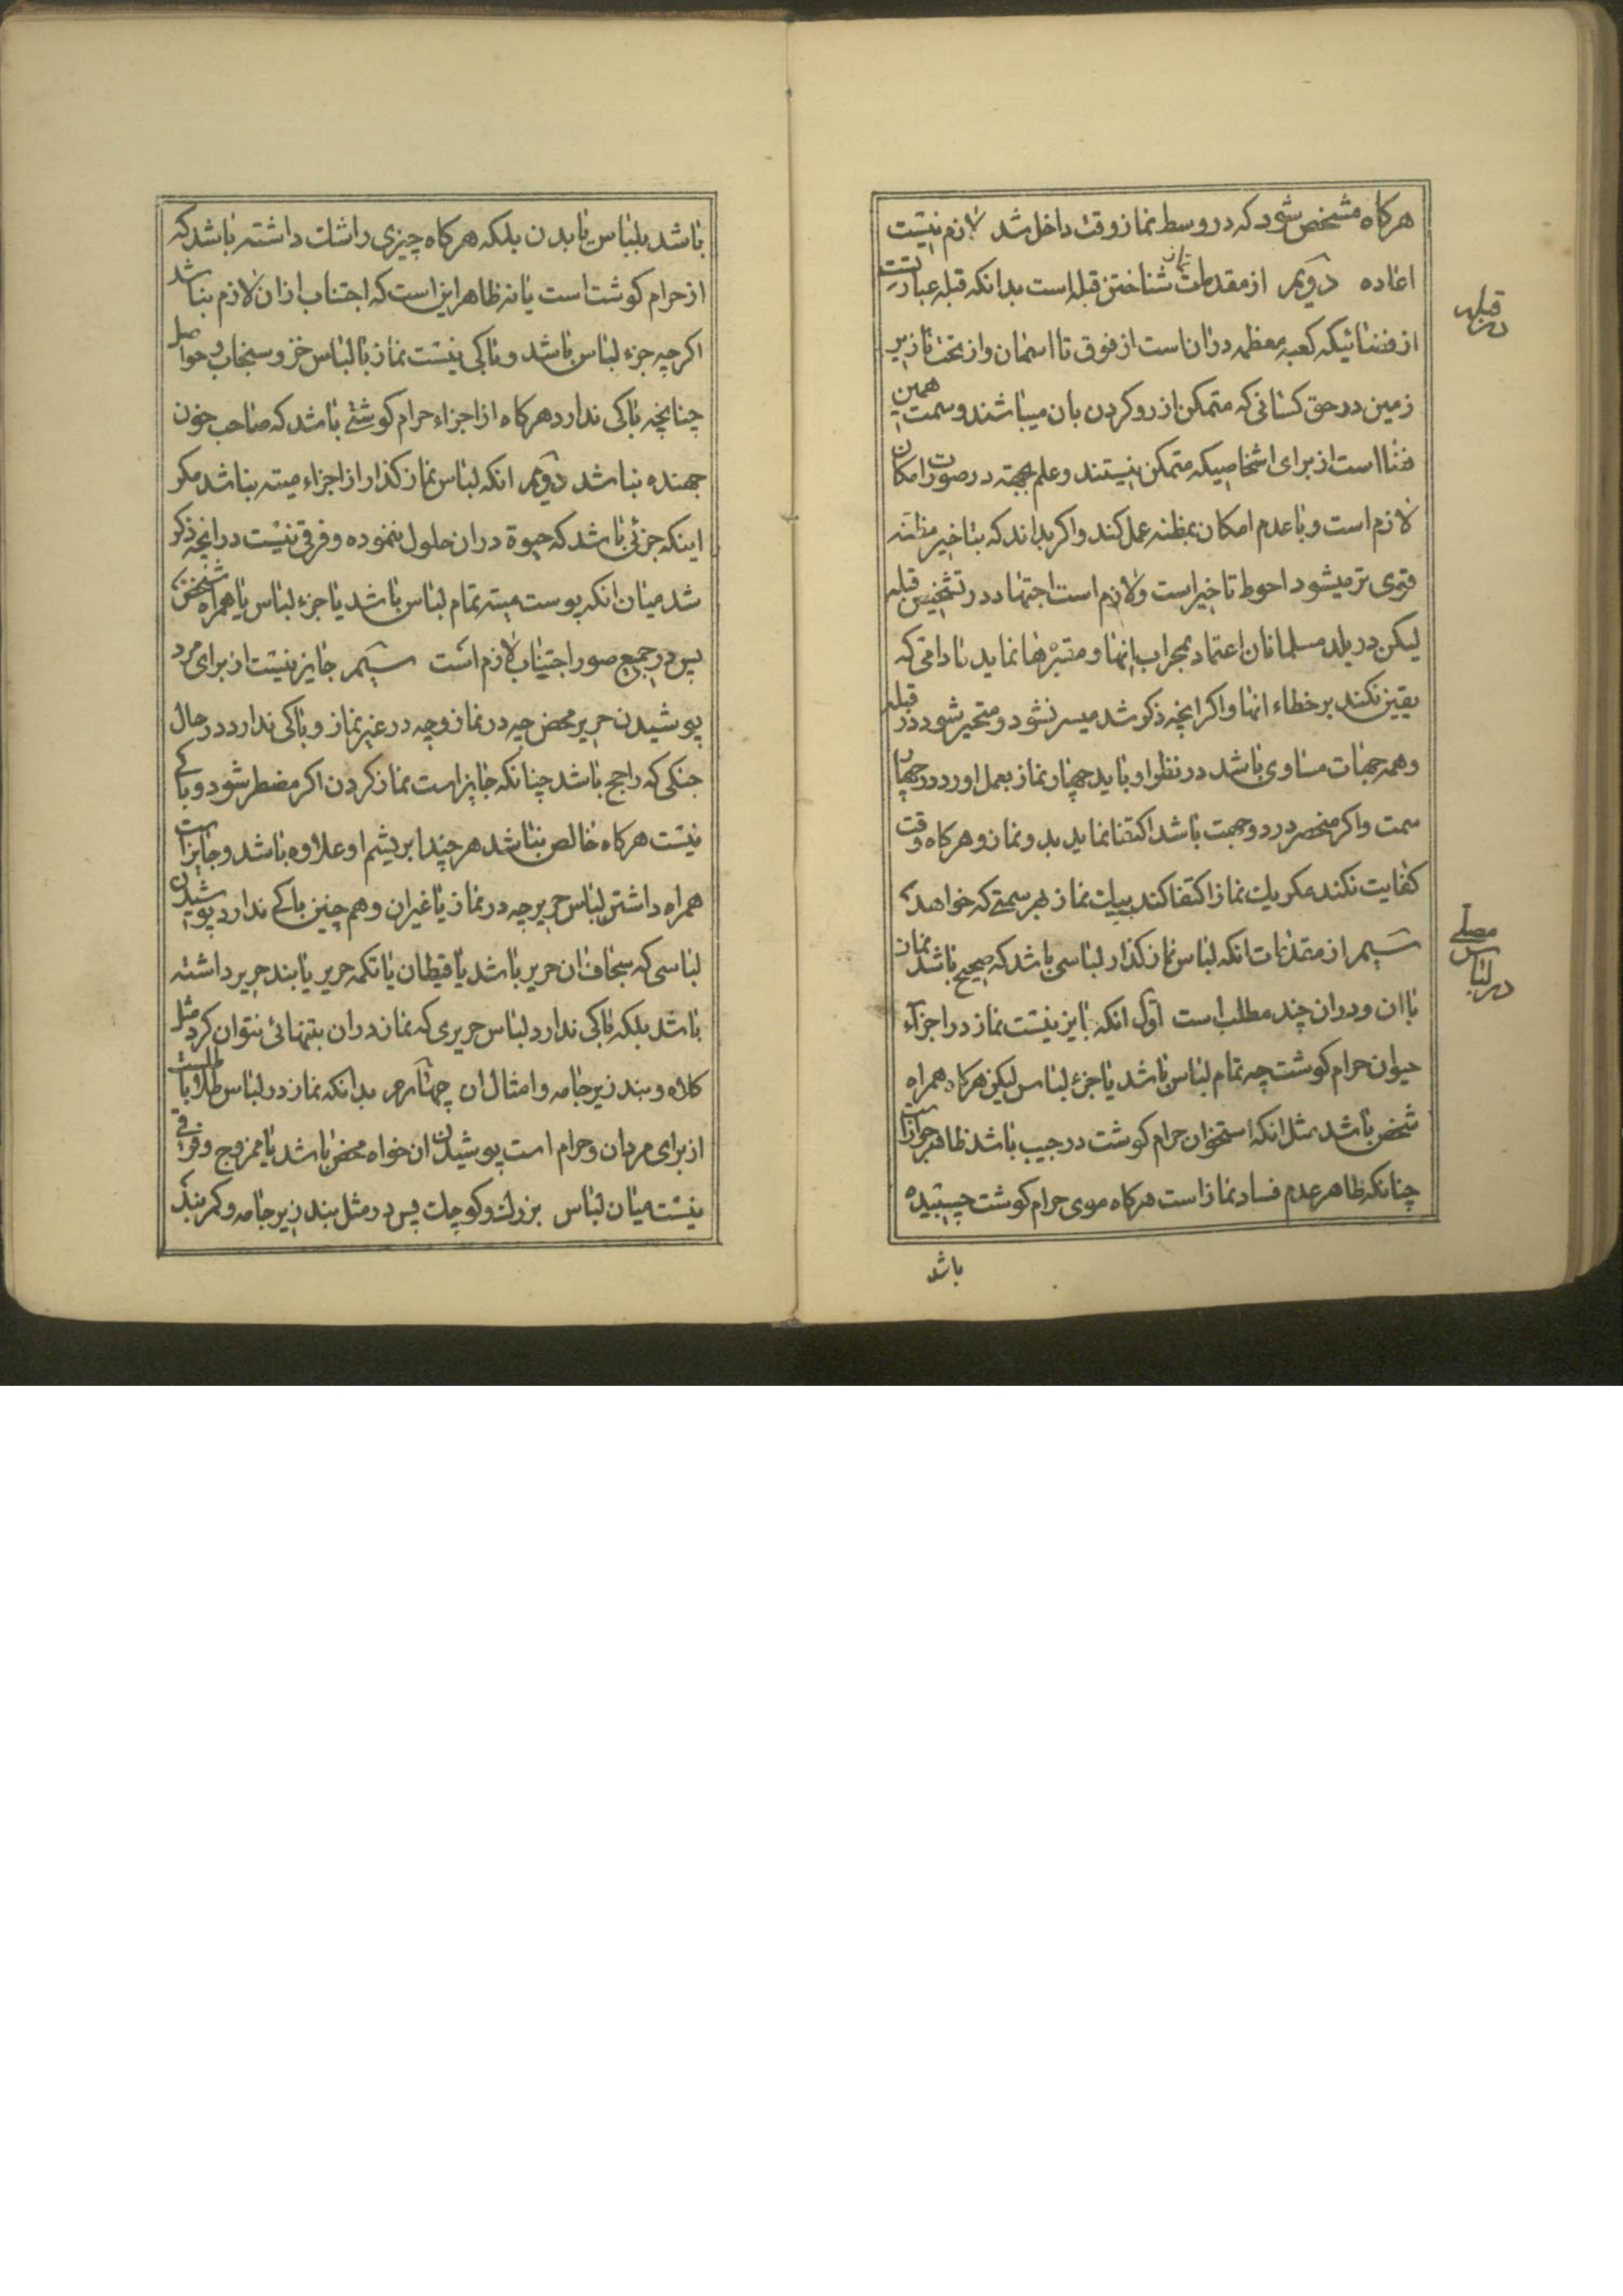 هرکاه مشخص شود که در وسط نماز وقت داخل شد لازم نیست
اعاده دویم از مقدمات نماز شناختن قبله است بدانکه قبله عبارتست
در قبله
از فضائیکه کعبه معظمه در ان است از فوق تا اسمان و از تحت تا زیر
زمین در حق کسانی که متمکن از رو کردن بان میباشند و سمت همین
فضا است از برای اشخاصیکه متمکن نیستند و علم بجهة در صورت امکان
لازم است و با عدم امکان بمظنه عمل کند و اکر بداند که بتاخیر مظنه
قوی تر میشود احوط تاخیر است و لازم است اجتهاد در تشخیص قبله
لیکن در بلد مسلمانان اعتماد بمحراب انها و مقبره‌ها نماید مادامی که
یقین نکند بر خطاء انها و اکر انچه ذکر شد میسر نشود و متحیر شود در قبله
و همه جهات مساوی باشد در نظر او باید چهار نماز بعمل اورد در چهار
سمت و اکر منحصر در دو جهت باشد اکتفا نماید بدو نماز و هرکاه وقت
کفایت نکند مکر یک نماز اکتفا کند بیک نماز بهر سمتی که خواهد
سیم از مقدمات انکه لباس نماز کذار لباسی باشد که صحیح باشد نماز
در لباس مصلے
با ان و در ان چند مطلب است اول انکه جایز نیست نماز در اجزآء
حیوان حرام کوشت چه تمام لباس باشد یا جزء لباس لیکن هرکاه همراه
شخص باشد مثل انکه استخوان حرام کوشت در جیب باشد ظاهر جواز است
چنانکه ظاهر عدم فساد نماز است هرکاه موی حرام کوشت چسبیده
باشد
باشد بلباس یا بدن بلکه هرکاه چیزی را شک داشته باشد که
از حرام کوشت است یا نه ظاهر این است که اجتناب از ان لازم نباشد
اکرچه جزء لباس باشد و باکی نیست نماز با لباس خز و سنجاب و حواصل
چنانچه باکی ندارد هرکاه از اجزاء حرام کوشتے باشد که صاحب خون
جهنده نباشد دویم انکه لباس نماز کذار از اجزاء میته نباشد مکر
اینکه جزئی باشد که حیوة در ان حلول ننموده و فرقی نیست در انچه ذکر
شد میان انکه پوست میته تمام لباس باشد یا جزء لباس یا همراه شخص
پس در جمیع صور اجتناب لازم است سیم جایز نیست از برای مرد
پوشیدن حریر محض چه در نماز و چه در غیر نماز و باکی ندارد در حال
جنکی که راجح باشد چنانکه جایز است نماز کردن اکر مضطر شود و باکے
نیست هرکاه خالص نباشد هر چند ابریشم او علاوه باشد و جایز است
همراه داشتن لباس حریر چه در نماز یا غیر ان و هم چنین باکے ندارد پوشیدن
لباسی که سجاف ان حریر باشد یا قیطان یا تکمه حریر یا بند حریر داشته
باشد بلکه باکی ندارد لباس حریری که نماز در ان بتنهائی نتوان کرد مثل
کلاه و بند زیر جامه و امثال ان چهارم بدانکه نماز در لباس طلا باطلست
از برای مردان و حرام است پوشیدن ان خواه محض باشد یا ممزوج و فرقے
نیست میان لباس بزرک و کوچک پس در مثل بند زیر جامه و کمربند